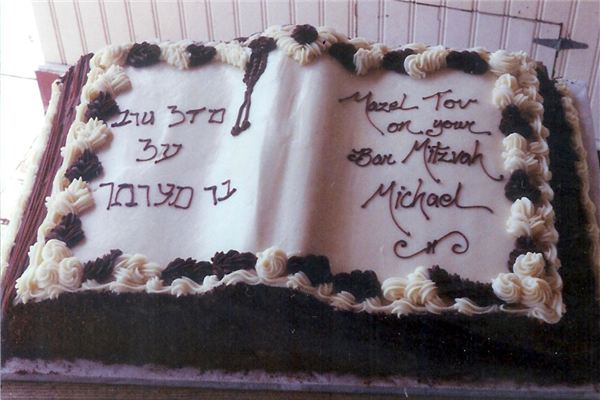 מזל טוב
על
בר מצותך
Mazel Tov
on your
Bar Mitzvah
Michael